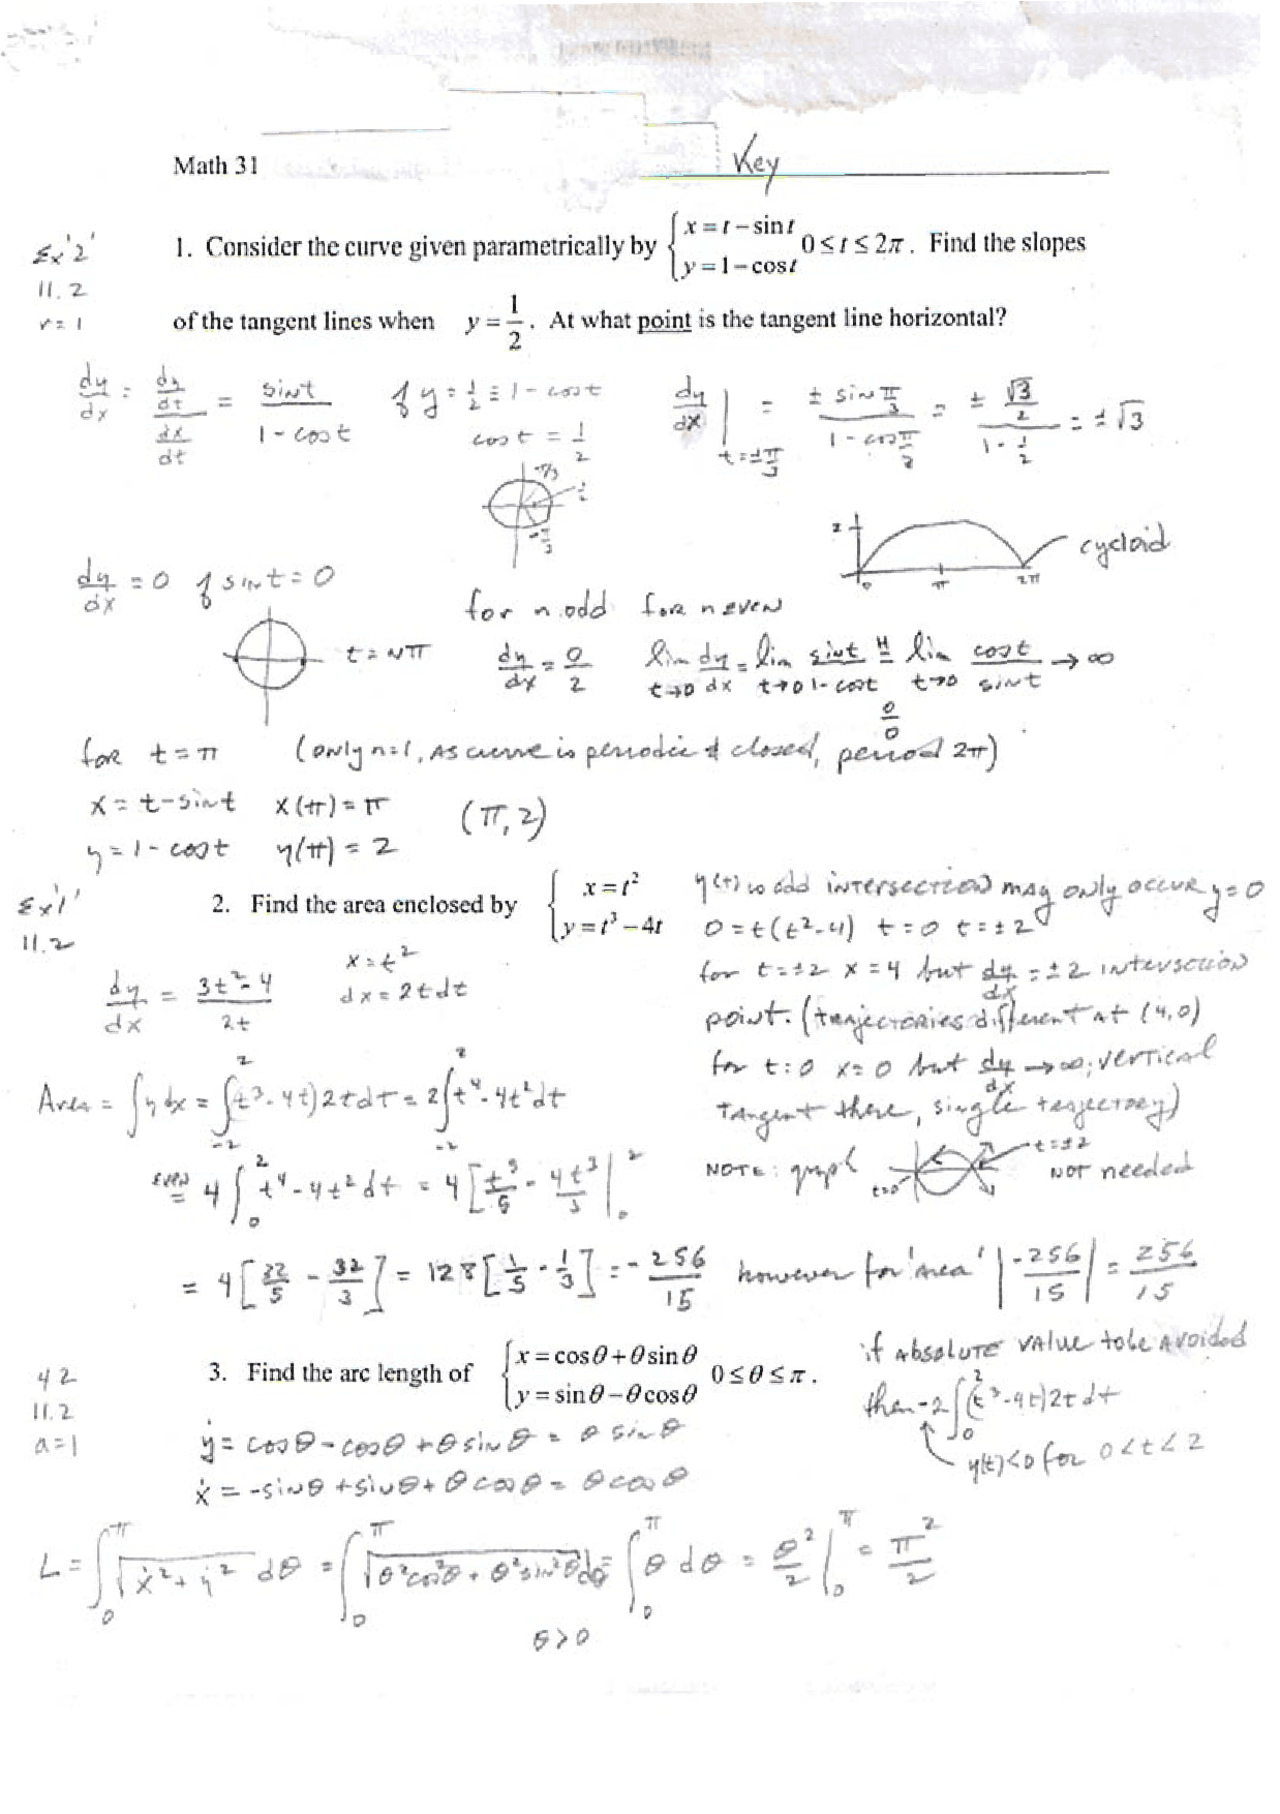 Math 31
Key
Ex '2'
11.2
r = 1
1. Consider the curve given parametrically by { x = t − sin t
y = 1 − cos t 0 ≤ t ≤ 2π. Find the slopes
of the tangent lines when y = 1/2. At what point is the tangent line horizontal?
dy/dx = (dy/dt)/(dx/dt) = sin t/(1 - cos t)
if y = 1/2 = 1 - cos t
cos t = 1/2
π/3
1/2
-π/3
dy/dx | t = ±π/3 = ± sin π/3 / (1 - cos π/3) = ± (√3/2)/(1 - 1/2) = ± √3
2
0 π 2π
cycloid
dy/dx = 0 if sin t = 0
t = nπ
for n odd
dy/dx = 0/2
for n even
lim t→0 dy/dx = lim t→0 sin t/(1 - cos t) H= lim t→0 cos t/sin t → ∞
0/0
for t = π (only n=1, as curve is periodic & closed, period 2π)
x = t - sin t x(π) = π
y = 1 - cos t y(π) = 2
(π, 2)
Ex '1'
11.2
2. Find the area enclosed by { x = t²
y = t³ − 4t
y(t) is odd intersection may only occur y = 0
0 = t(t² - 4) t = 0 t = ± 2
for t = ±2 x = 4 but dy/dx = ± 2 intersection
point. (trajectories different at (4,0)
for t = 0 x = 0 but dy/dx → ∞; vertical
tangent there, single trajectory)
NOTE: graph
t=0
t = ±2
not needed
dy/dx = (3t² - 4)/2t
x = t²
dx = 2t dt
Area = ∫ y dx = ∫_{-2}^{2} (t³ - 4t) 2t dt = 2 ∫_{-2}^{2} t⁴ - 4t² dt
even = 4 ∫_0^2 t⁴ - 4t² dt = 4 [t⁵/5 - 4t³/3 |_0^2
= 4 [32/5 - 32/3] = 128 [1/5 - 1/3] = - 256/15 however for 'area' |-256/15| = 256/15
if absolute value to be avoided
then -2 ∫_0^2 (t³ - 4t) 2t dt
y(t) < 0 for 0 < t < 2
42
11.2
a = 1
3. Find the arc length of { x = cos θ + θ sin θ
y = sin θ − θ cos θ 0 ≤ θ ≤ π.
ẏ = cos θ - cos θ + θ sin θ = θ sin θ
ẋ = -sin θ + sin θ + θ cos θ = θ cos θ
L = ∫_0^π √(ẋ² + ẏ²) dθ = ∫_0^π √(θ² cos² θ + θ² sin² θ) dθ = ∫_0^π θ dθ = θ²/2 |_0^π = π²/2
θ > 0